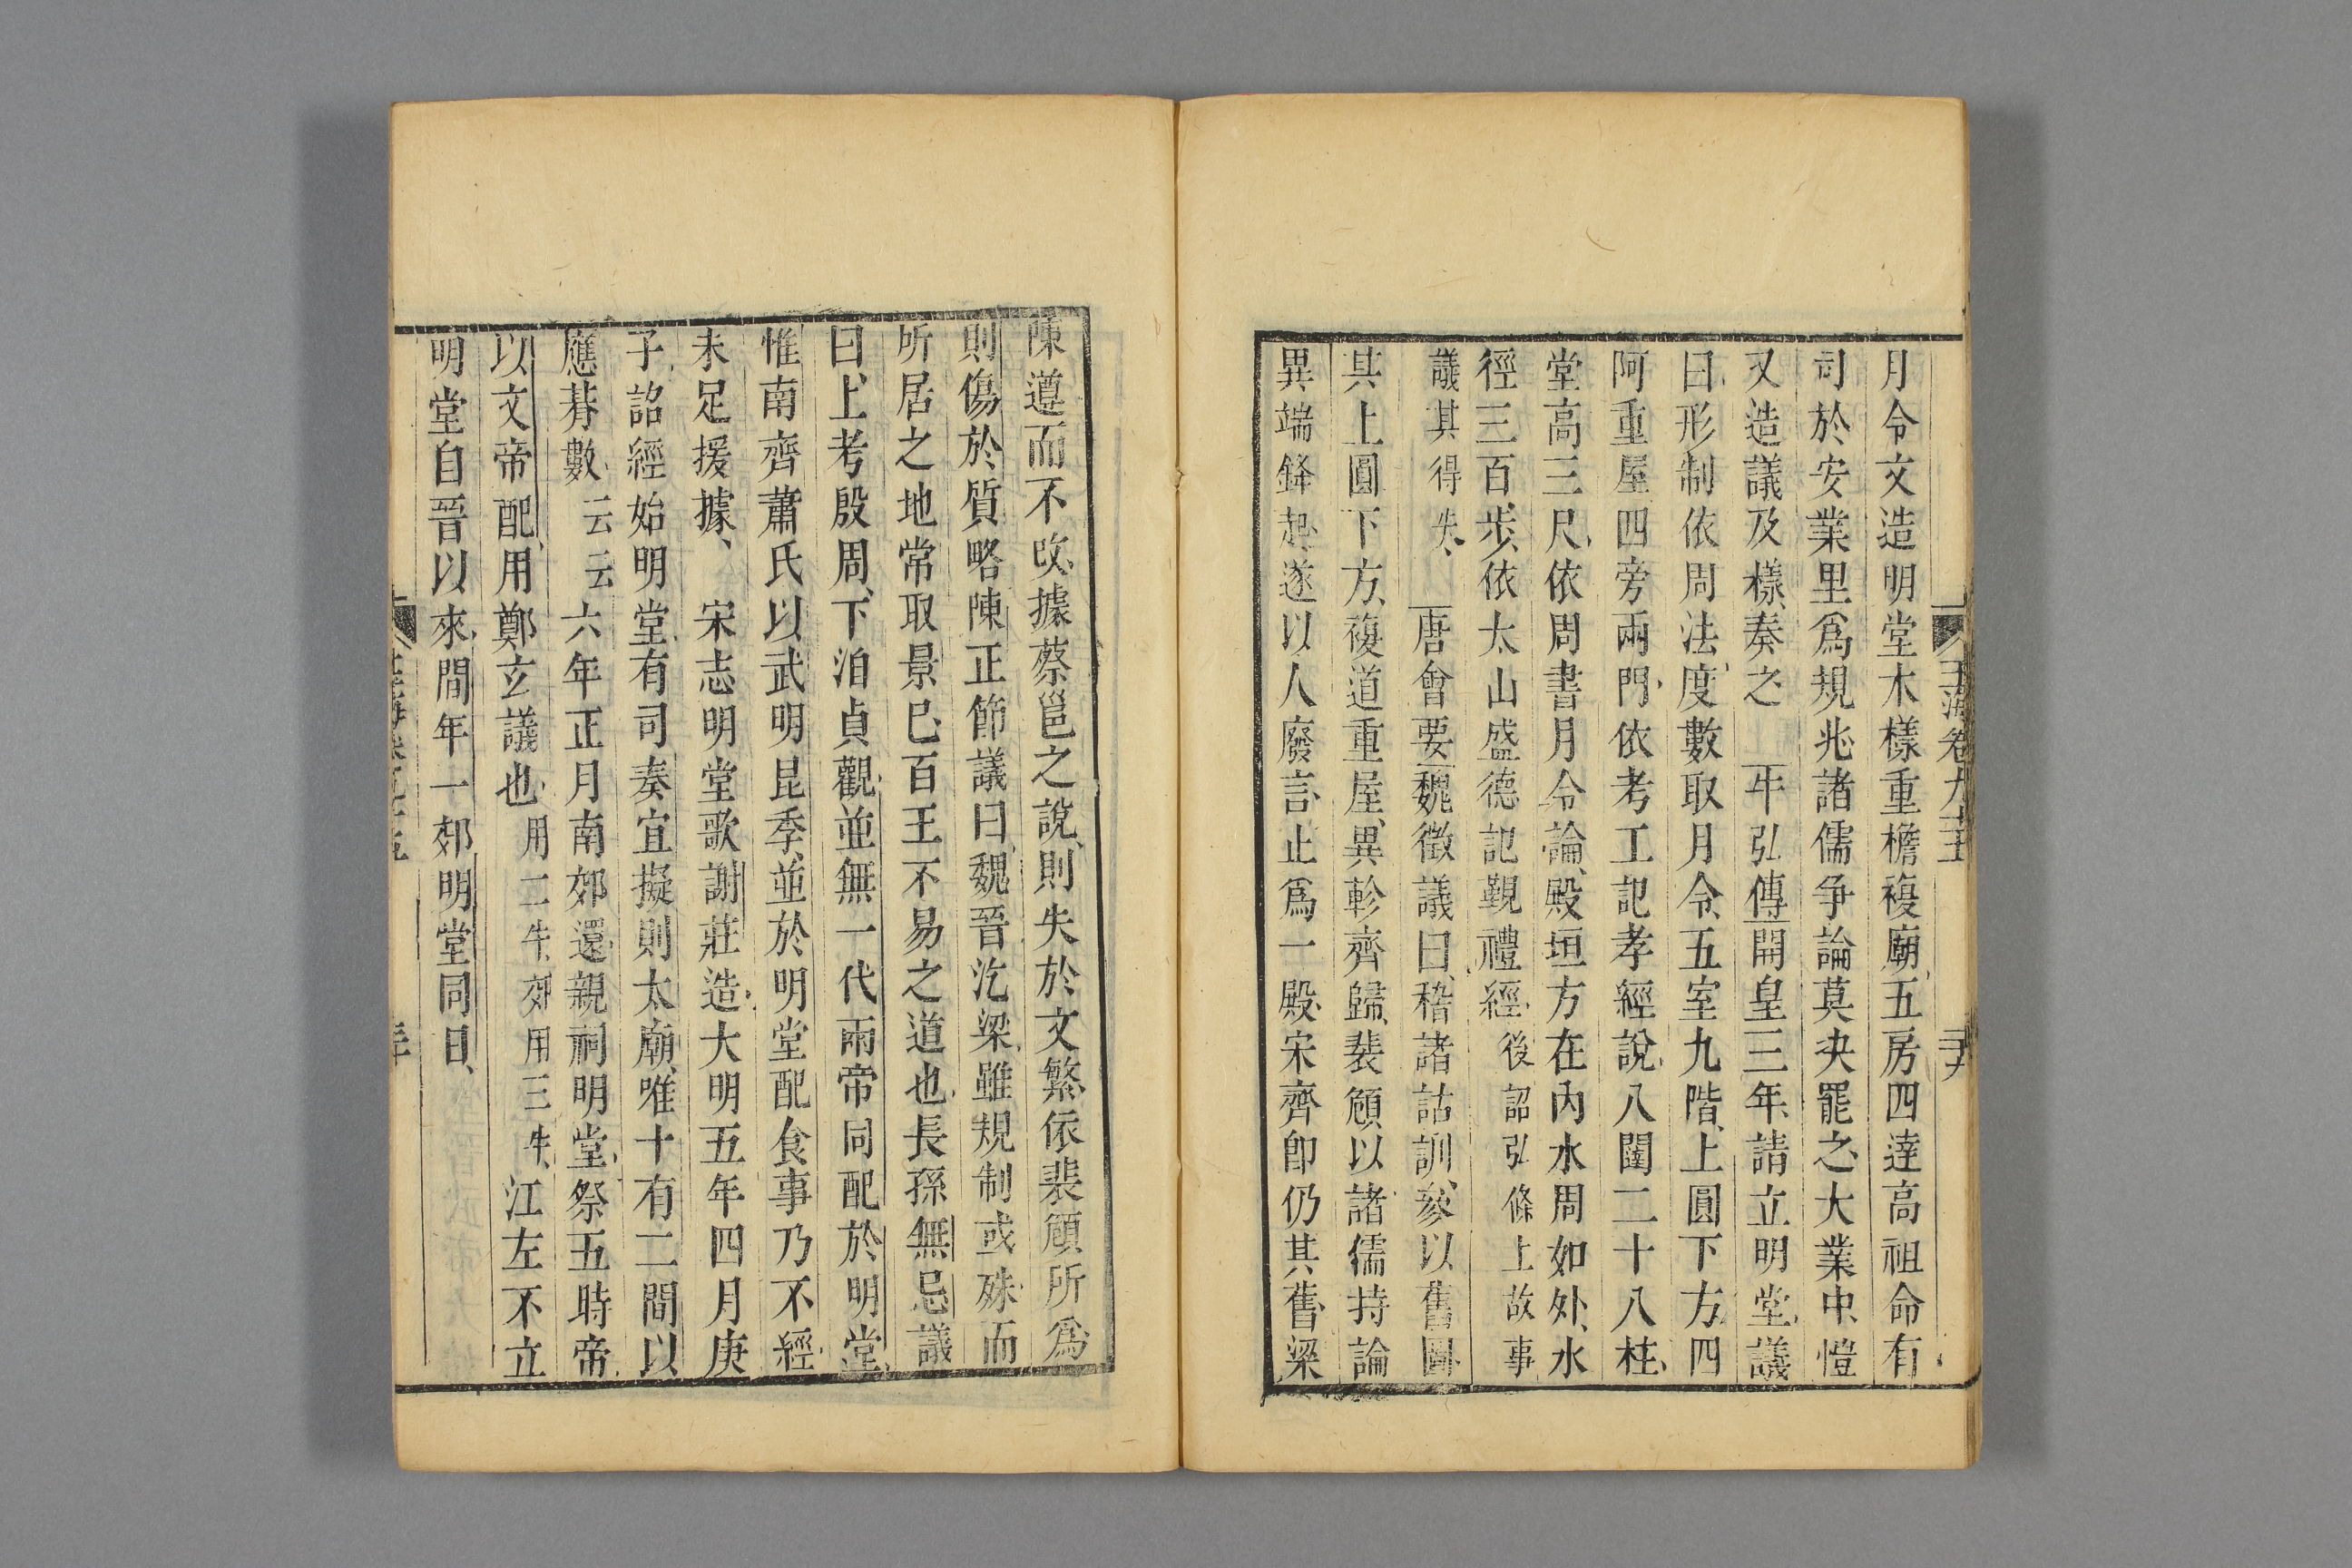 玉海卷九十五 二十九
月令文造明堂木樣重檐複廟五房四達高祖命有
司於安業里爲規兆諸儒爭論莫決罷之大業中愷
又造議及樣奏之 牛弘傳開皇三年請立明堂議
曰形制依周法度數取月令五室九階上圓下方四
阿重屋四旁兩門依考工記孝經說八闥二十八柱
堂高三尺依周書月令論殿垣方在內水周如外水
徑三百步依太山盛德記覲禮經後詔弘條上故事
議其得失 唐會要魏徵議曰稽諸詁訓參以舊圖
其上圓下方複道重屋異軫齊歸裴頠以諸儒持論
異端鋒起遂以人廢言止爲一殿宋齊卽仍其舊梁
陳遵而不改據蔡邕之說則失於文繁依裴頠所爲
則傷於質略陳正節議曰魏晉汔梁雖規制或殊而
所居之地常取景巳百王不易之道也長孫無忌議
曰上考殷周下洎貞觀並無一代兩帝同配於明堂
惟南齊蕭氏以武明昆季並於明堂配食事乃不經
未足援據 宋志明堂歌謝莊造大明五年四月庚
子詔經始明堂有司奏宜擬則太廟唯十有二間以
應朞數云云六年正月南郊還親祠明堂祭五時帝
以文帝配用鄭玄議也用二牛郊用三牛江左不立
明堂自晉以來間年一郊明堂同日